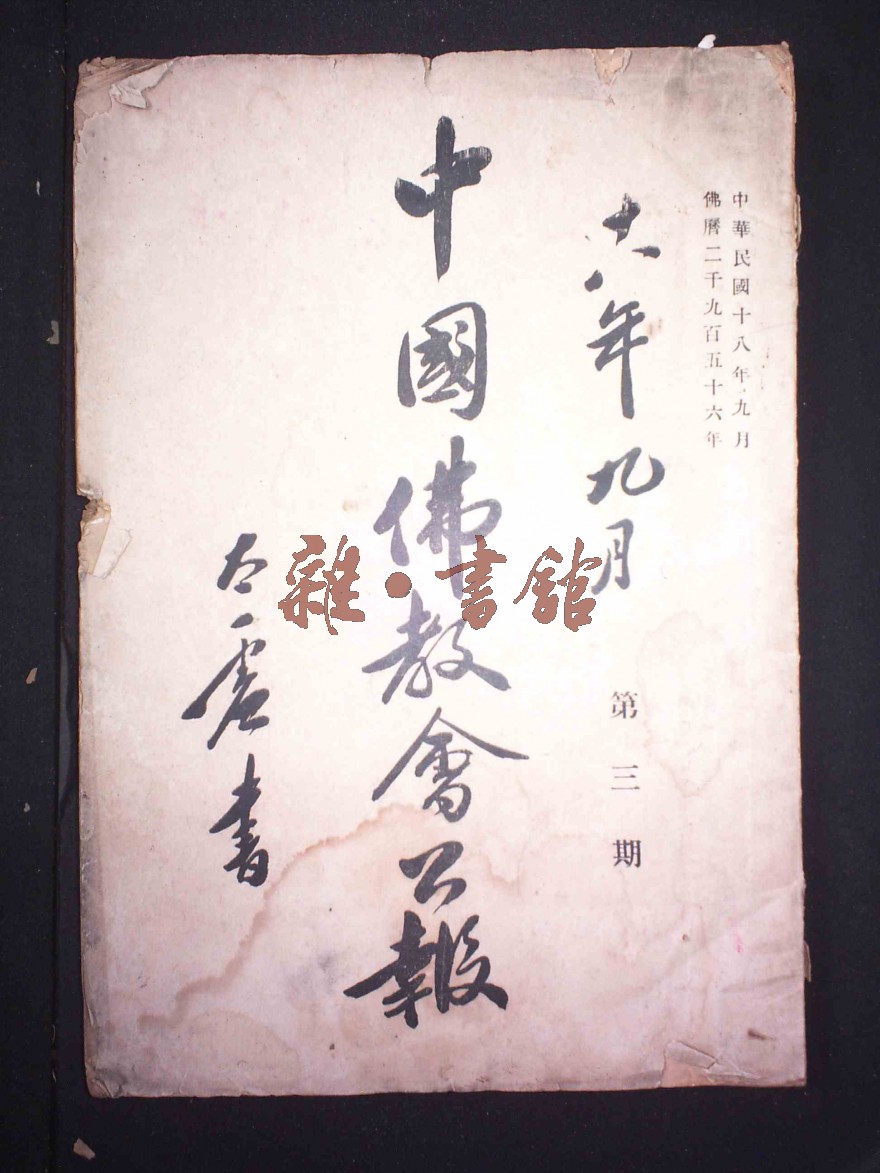 中華民國十八年九月
佛曆二千九百五十六年
十八年九月
第三期
中國佛教會公報
太虛書
雜·書館